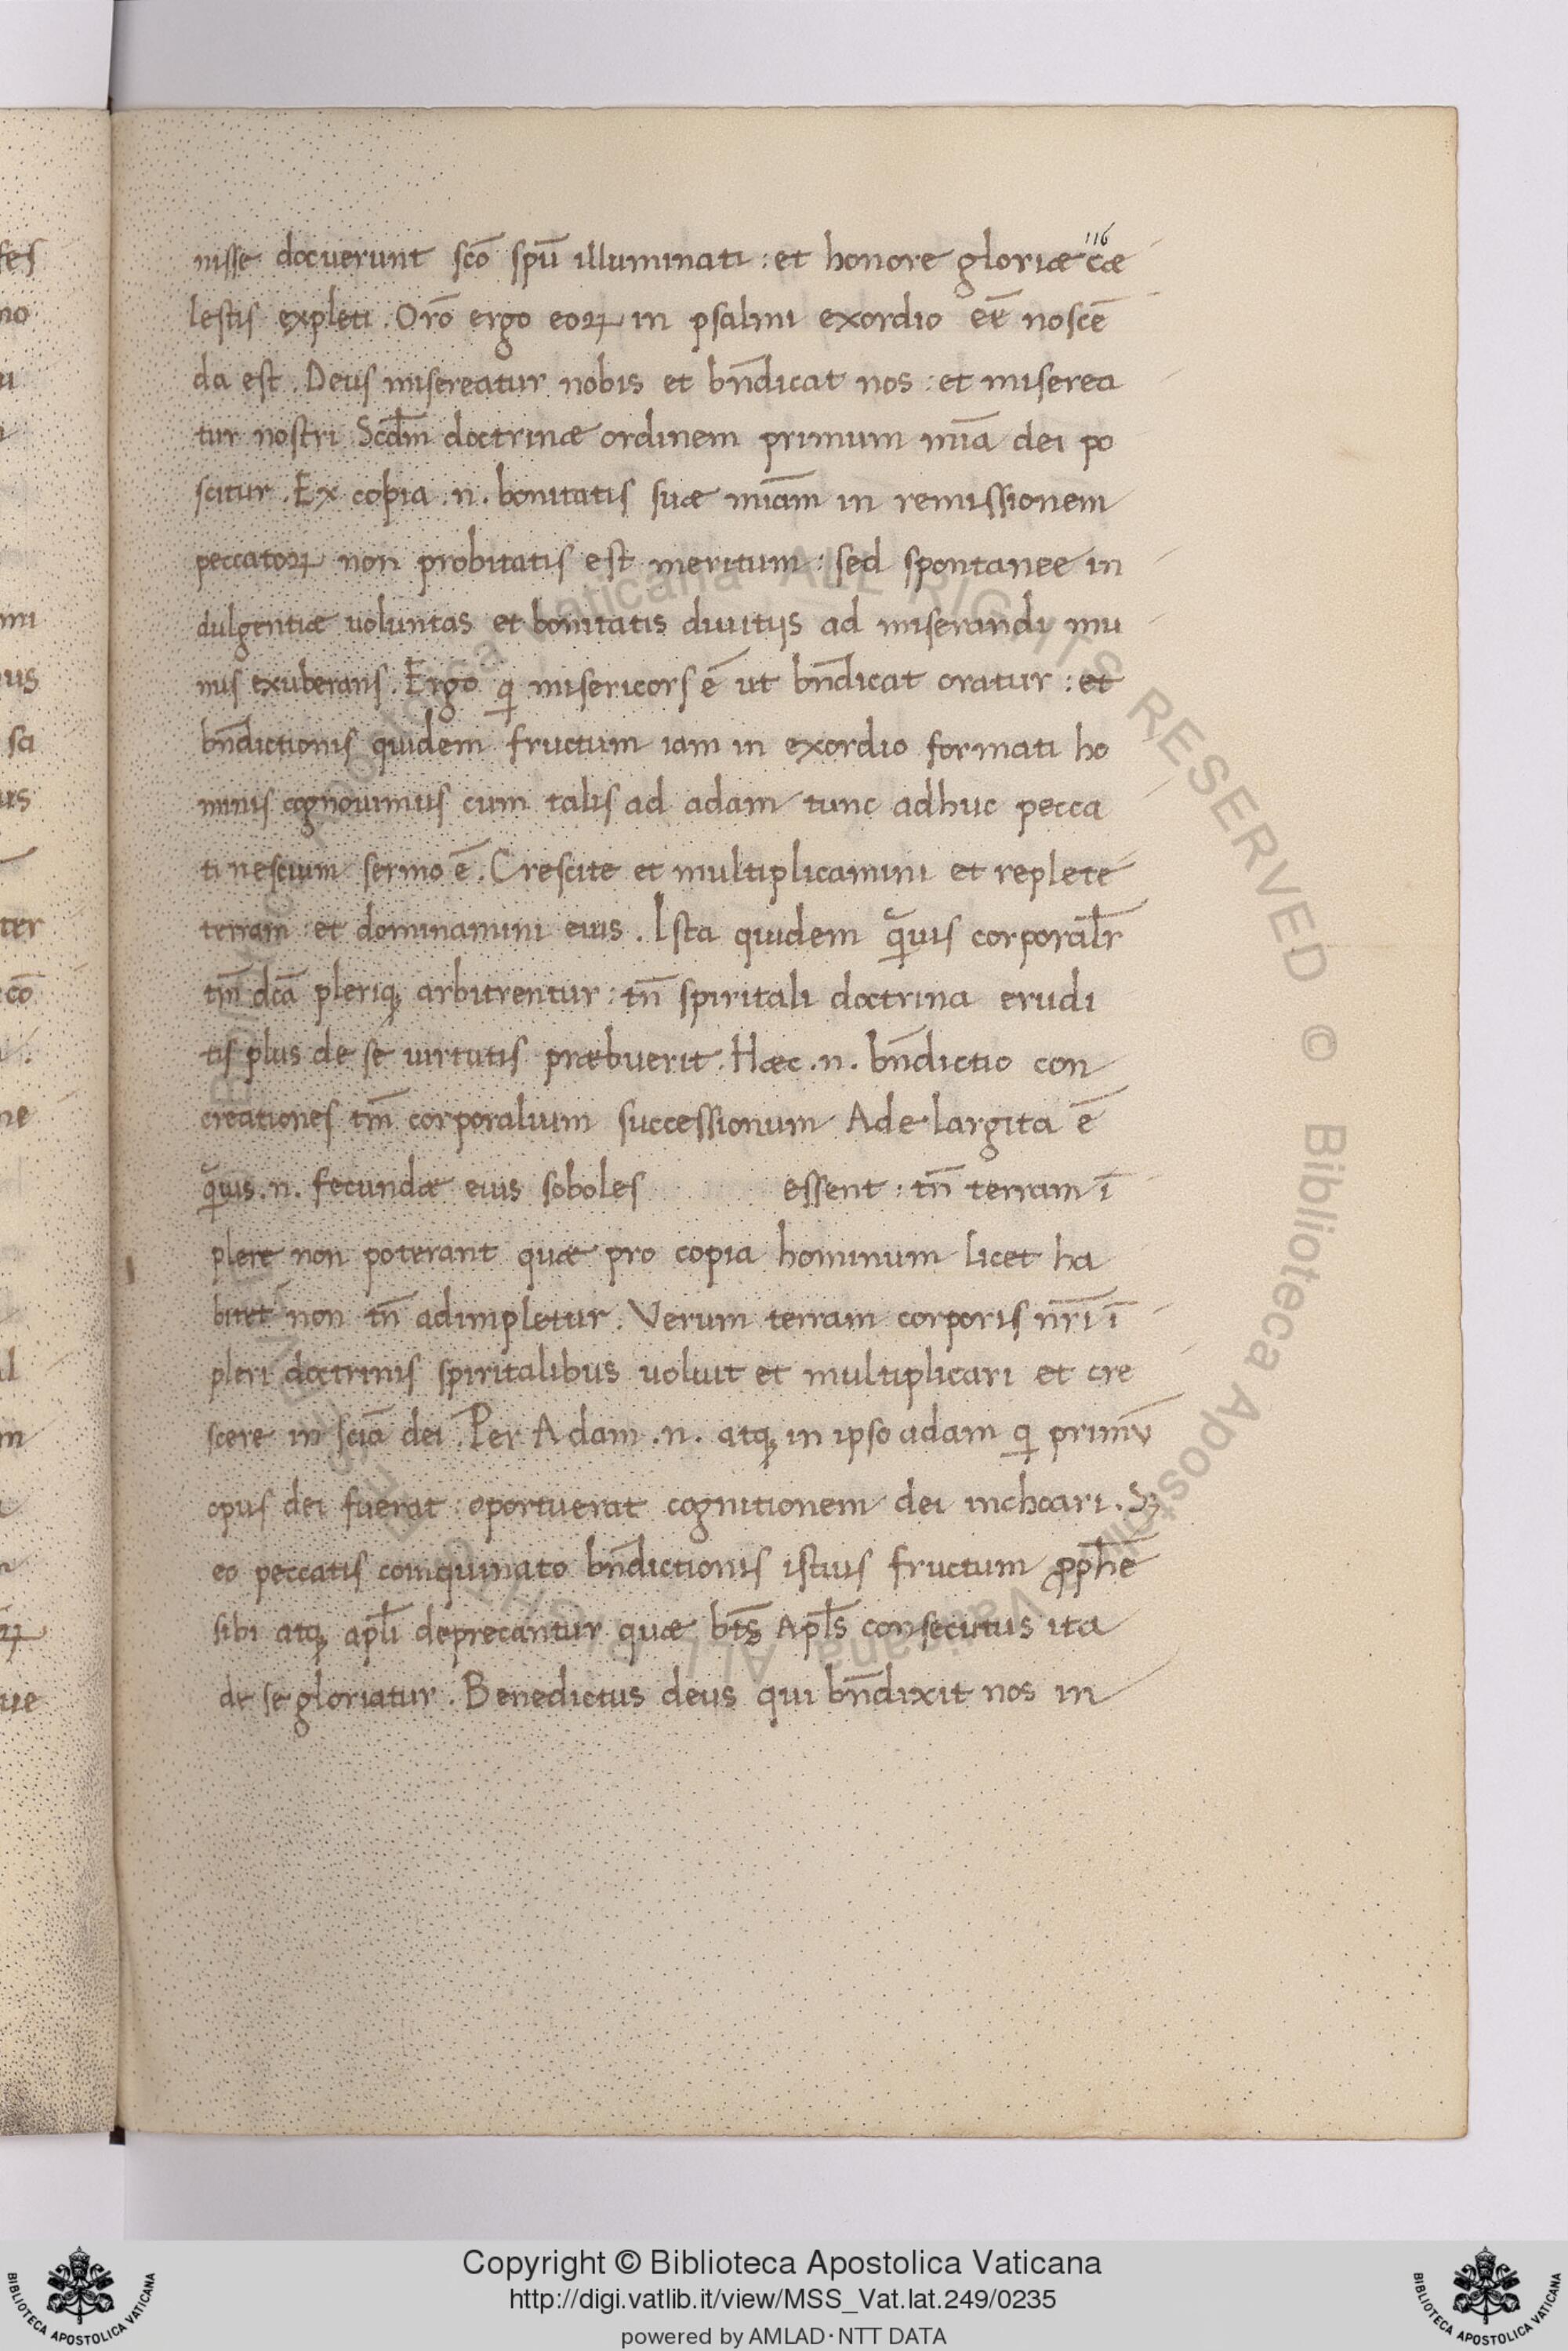 116
nisse docuerunt scō spū illuminati : et honore gloriæ cæ
lestis expleti . Orō ergo eoꝝ in psalmi exordio eē noscē
da est . Deus misereatur nobis et bn̄dicat nos : et miserea
tur nostri Scd̄m doctrinæ ordinem primum mīa dei po
scitur . Ex copia .n. bonitatis suæ mīam in remissionem
peccatoꝝ non probitatis est meritum : sed spontanee in
dulgentiæ uoluntas et bonitatis diuitijs ad miserandi mu
nus exuberans . Ergo qͥ misericors ē ut bn̄dicat oratur : et
bn̄dictionis quidem fructum iam in exordio formati ho
minis cognouimus cum talis ad adam tunc adhuc pecca
ti nescium sermo ē . Crescite et multiplicamini et replete
terram : et dominamini eius . Ista quidem qᷓuis corporalr̄
tm̄ dc̄a pleriqꝫ arbitrentur : tn̄ spiritali doctrina erudi
tis plus de se uirtutis præbuerit . Hæc .n. bn̄dictio con
creationes tm̄ corporalium successionum Ade largita ē
qᷓuis .n. fecundæ eius soboles essent : tn̄ terram ī
plere non poterant quæ pro copia hominum licet ha
bitet non tn̄ adimpletur . Verum terram corporis nr̄i ī
pleri doctrinis spiritalibus uoluit et multiplicari et cre
scere in scīa dei . Per Adam .n. atqꝫ in ipso adam qͥ primū
opus dei fuerat : oportuerat cognitionem dei inchoari . Sꝫ
eo peccatis coinquinato bn̄dictionis istius fructum ꝓph̄e
sibi atqꝫ apl̄i deprecantur quæ bt̄s Apl̄s consecutus ita
de se gloriatur . Benedictus deus qui bn̄dixit nos in
Copyright © Biblioteca Apostolica Vaticana
http://digi.vatlib.it/view/MSS_Vat.lat.249/0235
powered by AMLAD·NTT DATA
BIBLIOTECA APOSTOLICA VATICANA
BIBLIOTECA APOSTOLICA VATICANA